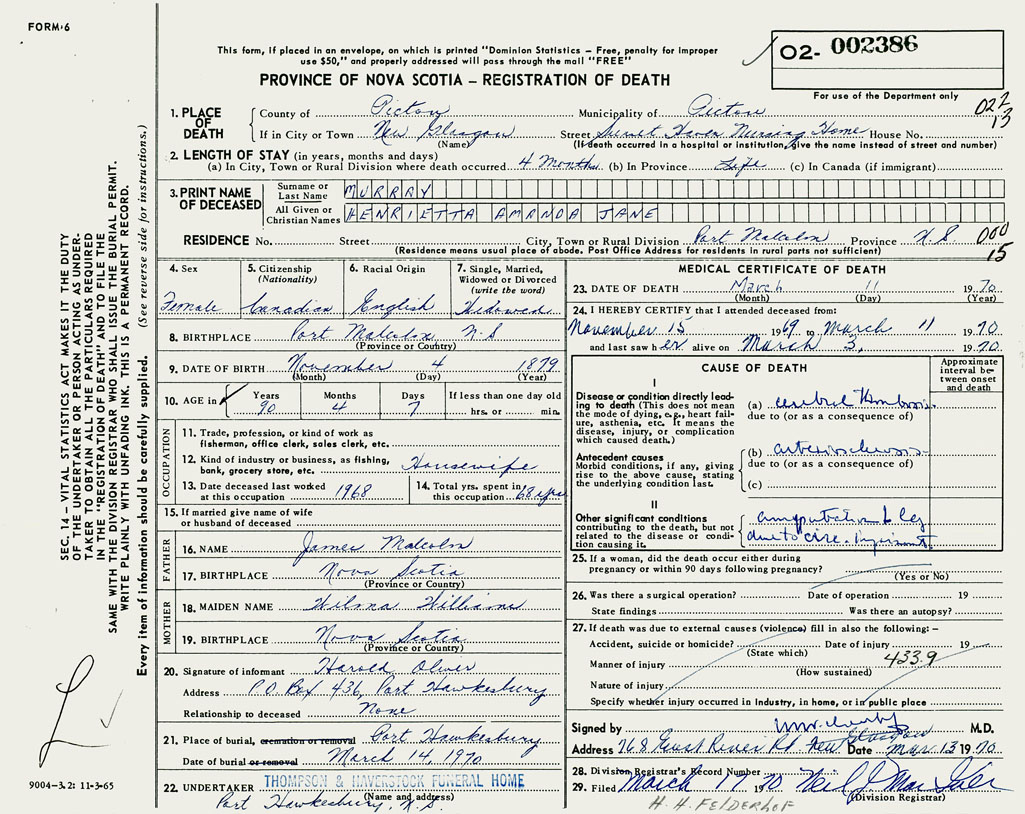 FORM-6
This form, if placed in an envelope, on which is printed "Dominion Statistics – Free, penalty for improper
use $50," and properly addressed will pass through the mail "FREE"
PROVINCE OF NOVA SCOTIA – REGISTRATION OF DEATH
02- 002386
For use of the Department only
022
13
1. PLACE OF DEATH
County of Pictou Municipality of Pictou
If in City or Town New Glasgow Street Sunset Haven Nursing Home House No.
(Name) (If death occurred in a hospital or institution, give the name instead of street and number)
2. LENGTH OF STAY (in years, months and days)
(a) In City, Town or Rural Division where death occurred 4 months (b) In Province Life (c) In Canada (if immigrant)
3. PRINT NAME OF DECEASED
Surname or Last Name MURRAY
All Given or Christian Names HENRIETTA AMANDA JANE
RESIDENCE No. Street City, Town or Rural Division Port Malcolm Province N.S. 000
15
(Residence means usual place of abode. Post Office Address for residents in rural parts not sufficient)
4. Sex
Female
5. Citizenship (Nationality)
Canadian
6. Racial Origin
English
7. Single, Married, Widowed or Divorced (write the word)
Widowed
8. BIRTHPLACE Port Malcolm N S
(Province or Country)
9. DATE OF BIRTH November 4 1879
(Month) (Day) (Year)
10. AGE in Years 90 Months 4 Days 7 If less than one day old
hrs. or min.
OCCUPATION
11. Trade, profession, or kind of work as
fisherman, office clerk, sales clerk, etc.
12. Kind of industry or business, as fishing,
bank, grocery store, etc. Housewife
13. Date deceased last worked
at this occupation 1968
14. Total yrs. spent in
this occupation 68 yrs
15. If married give name of wife
or husband of deceased
FATHER
16. NAME James Malcolm
17. BIRTHPLACE Nova Scotia
(Province or Country)
MOTHER
18. MAIDEN NAME Wilma Williams
19. BIRTHPLACE Nova Scotia
(Province or Country)
20. Signature of informant Harold Oliver
Address P.O. Box 436, Port Hawkesbury
Relationship to deceased None
21. Place of burial, cremation or removal Port Hawkesbury
Date of burial or removal March 14, 1970
22. UNDERTAKER THOMPSON & HAVERSTOCK FUNERAL HOME
(Name and address)
Port Hawkesbury, N.S.
MEDICAL CERTIFICATE OF DEATH
23. DATE OF DEATH March 11 1970
(Month) (Day) (Year)
24. I HEREBY CERTIFY that I attended deceased from:
November 15 1969 to March 11 1970
and last saw her alive on March 3, 1970.
CAUSE OF DEATH
Approximate interval between onset and death
I
Disease or condition directly leading to death (This does not mean the mode of dying, e.g., heart failure, asthenia, etc. It means the disease, injury, or complication which caused death.)
(a) cerebral thrombosis
due to (or as a consequence of)
Antecedent causes
Morbid conditions, if any, giving rise to the above cause, stating the underlying condition last.
(b) arteriosclerosis
due to (or as a consequence of)
(c)
II
Other significant conditions
contributing to the death, but not related to the disease or condition causing it.
amputation L leg
due to circ. impairment
25. If a woman, did the death occur either during
pregnancy or within 90 days following pregnancy?
(Yes or No)
26. Was there a surgical operation? Date of operation 19
State findings Was there an autopsy?
27. If death was due to external causes (violence) fill in also the following:–
Accident, suicide or homicide? Date of injury 19
(State which)
433.9
Manner of injury
(How sustained)
Nature of injury
Specify whether injury occurred in industry, in home, or in public place
Signed by M.D.
Address 768 East River Rd New Glasgow Date Mar 13 1970
28. Division Registrar's Record Number
29. Filed March 17 1970
(Division Registrar)
H. H. FELDERHOF
SEC. 14 – VITAL STATISTICS ACT MAKES IT THE DUTY
OF THE UNDERTAKER OR PERSON ACTING AS UNDER-
TAKER TO OBTAIN ALL THE PARTICULARS REQUIRED
IN THE "REGISTRATION OF DEATH" AND TO FILE THE
SAME WITH THE DIVISION REGISTRAR WHO SHALL ISSUE THE BURIAL PERMIT.
WRITE PLAINLY WITH UNFADING INK. THIS IS A PERMANENT RECORD.
Every item of information should be carefully supplied. (See reverse side for instructions.)
9004-3.2: 11-3-65